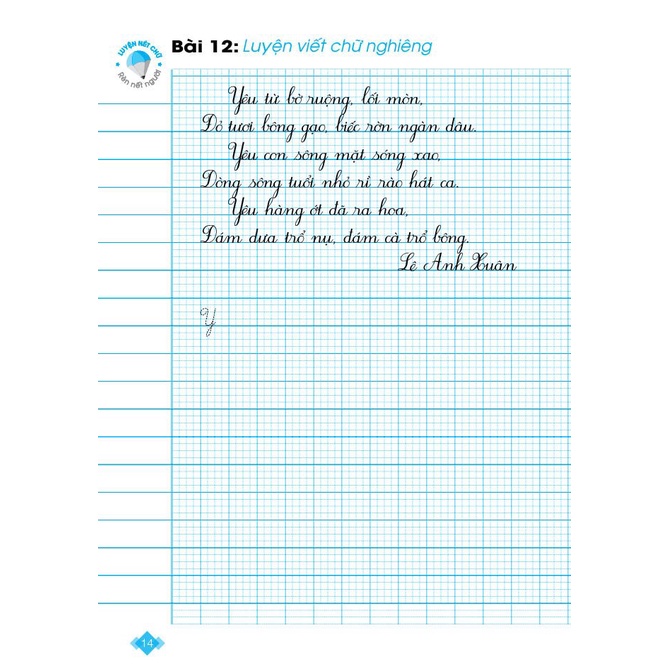 LUYỆN NÉT CHỮ
Rèn nết người
Bài 12: Luyện viết chữ nghiêng
Yêu từ bờ ruộng, lối mòn,
Đỏ tươi bông gạo, biếc rờn ngàn dâu.
Yêu con sông mặt sóng xao,
Dòng sông tuổi nhỏ rì rào hát ca.
Yêu hàng ớt đã ra hoa,
Đám dưa trổ nụ, đám cà trổ bông.
Lê Anh Xuân
Y
14